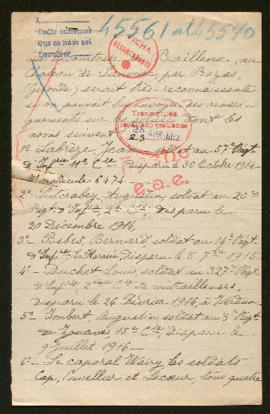 45561 al 45570
A
Pedir informes
Que no haya sei
Devolver
FICHA
de Baillenx, au
Château de par Bazas
(Gironde) serait très reconnaissante
pouvait lui envoyer des rensei-
gnements sur dont les
noms suivent
Transmitida
1º Labrière, Jean, soldat au 57e Régt
d'Infrie 11e Cie disparu le 30 Octobre 1914
Matricule: 6474
e.a.e.
2º Augustin soldat au 20me
Régt d'Infrie 2e Cie disparu le
20 Décembre 1914
3º Besbes, Bernard soldat au 14e Régt
d'Infrie disparu le 8 7bre 1915
4º Duchet Louis, soldat au 327e Régt
d'Infrie de mitrailleuses,
disparu le 26 Février 1916, à Verdun
5º Imbert Augustin soldat au 3e Régt
de Zouaves 15e Cie, disparu le
9 Juillet 1916
6º Le caporal Wavy, les soldats
Cap, Cuvellier et Lecœur, tous quatre